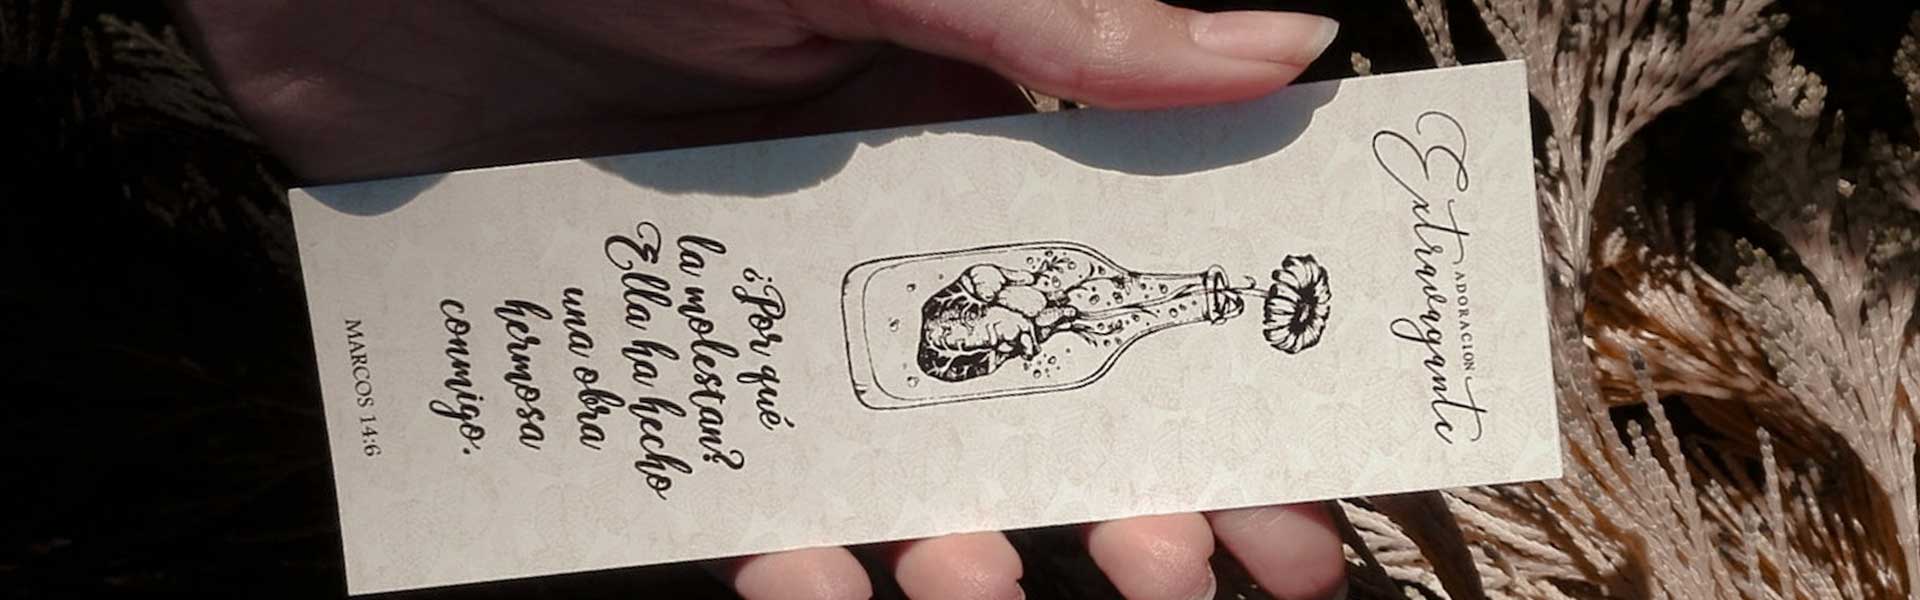 Extravagante
ADORACION
¿Por qué
la molestan?
Ella ha hecho
una obra
hermosa
conmigo.
MARCOS 14:6